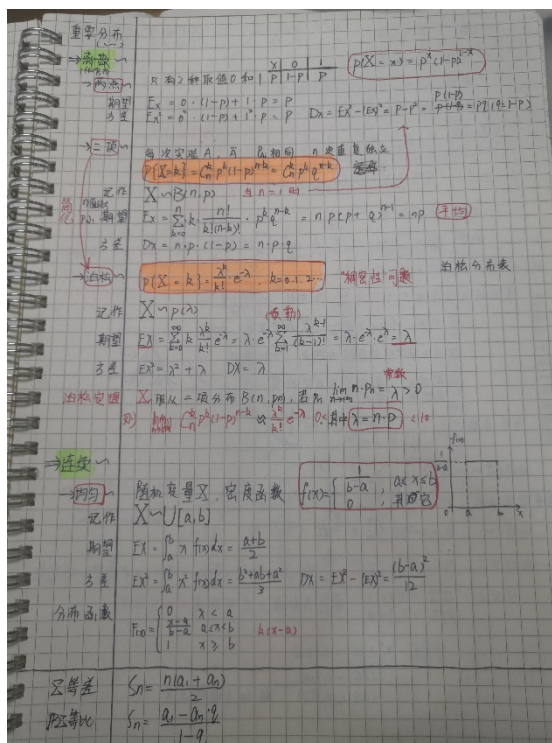 重要分布
→离散~
X 0 1
P 1-P P
P{X=x}=pˣ(1-p)¹⁻ˣ
→两点~ 只有2种取值0和1
期望 Ex = 0·(1-p)+1·p = p
方差 Ex² = 0²·(1-p)+1²·p = p Dx = EX²-(EX)² = p-p² = p(1-p) = pq (q=1-p)
→二项~ 每次实验A、Ā P相同 n次重复独立
P{X=k} = Cₙᵏ pᵏ(1-p)ⁿ⁻ᵏ = Cₙᵏ pᵏ qⁿ⁻ᵏ
记作 X~B(n,p) 当n=1时
期望 Ex = Σₖ₌₀ⁿ k· n!/(k!(n-k)!) · pᵏ qⁿ⁻ᵏ = n p(p+q)ⁿ⁻¹ = np
方差 Dx = n·p·(1-p) = n·p·q
→泊松~ P{X=k} = λᵏ/k! · e^-λ, k=0.1.2… "稠密性"问题 泊松分布表
记作 X~p(λ)
期望 EX = Σₖ₌₀^∞ k λᵏ/k! e^-λ = λ·e^-λ Σₖ₌₁^∞ λᵏ⁻¹/(k-1)! = λ·e^-λ·e^λ = λ
方差 EX² = λ²+λ DX = λ
常数
泊松定理 X服从二项分布B(n,pn),若有 lim n→∞ n·Pn = λ>0
则 lim n→∞ Cₙᵏ pᵏ(1-p)ⁿ⁻ᵏ ≈ λᵏ/k! e^-λ 其中λ=n·p
→连续~
→均匀~ 随机变量X,密度函数 f(x)={ 1/(b-a), a≤x≤b
0, 其它
记作 X~U[a,b]
期望 EX = ∫ₐᵇ x f(x)dx = (a+b)/2
方差 EX² = ∫ₐᵇ x² f(x)dx = (b²+ab+a²)/3 DX = EX²-(EX)² = (b-a)²/12
f(x)
1/(b-a)
0 a b x
分布函数 F(x)={ 0 x<a
(x-a)/(b-a) a≤x<b k(x-a)
1 x≥b
Σ等差 Sn = n(a₁+aₙ)/2
Σ等比 Sn = (a₁-aₙ·q)/(1-q)